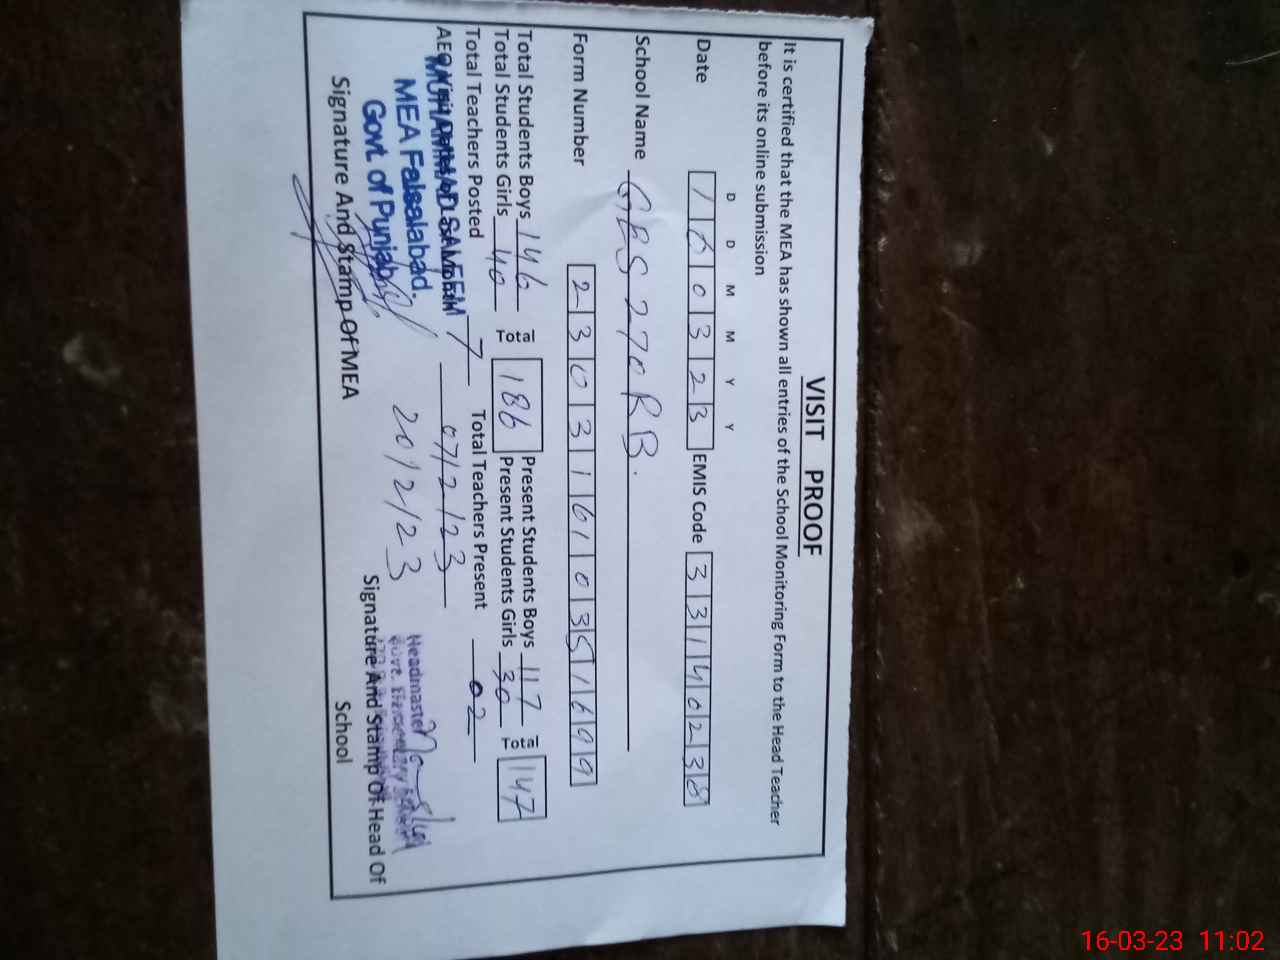 VISIT PROOF
It is certified that the MEA has shown all entries of the School Monitoring Form to the Head Teacher
before its online submission
D D M M Y Y
Date 1 6 0 3 2 3 EMIS Code 3 3 1 4 0 2 3 8
School Name GES 270 RB.
Form Number 2 3 0 3 1 6 1 0 3 5 1 6 9 9
Total Students Boys 146 Total 186 Present Students Boys 117 Total 147
Total Students Girls 40 Present Students Girls 30
Total Teachers Posted 7 Total Teachers Present 02
AEO 07/2/23
MUHAMMAD SAMEEM
MEA Faisalabad. 20/2/23
Govt. of Punjab
Headmaster
Govt. Elementary School
Signature And Stamp Of MEA
Signature And Stamp Of Head Of
School
16-03-23 11:02